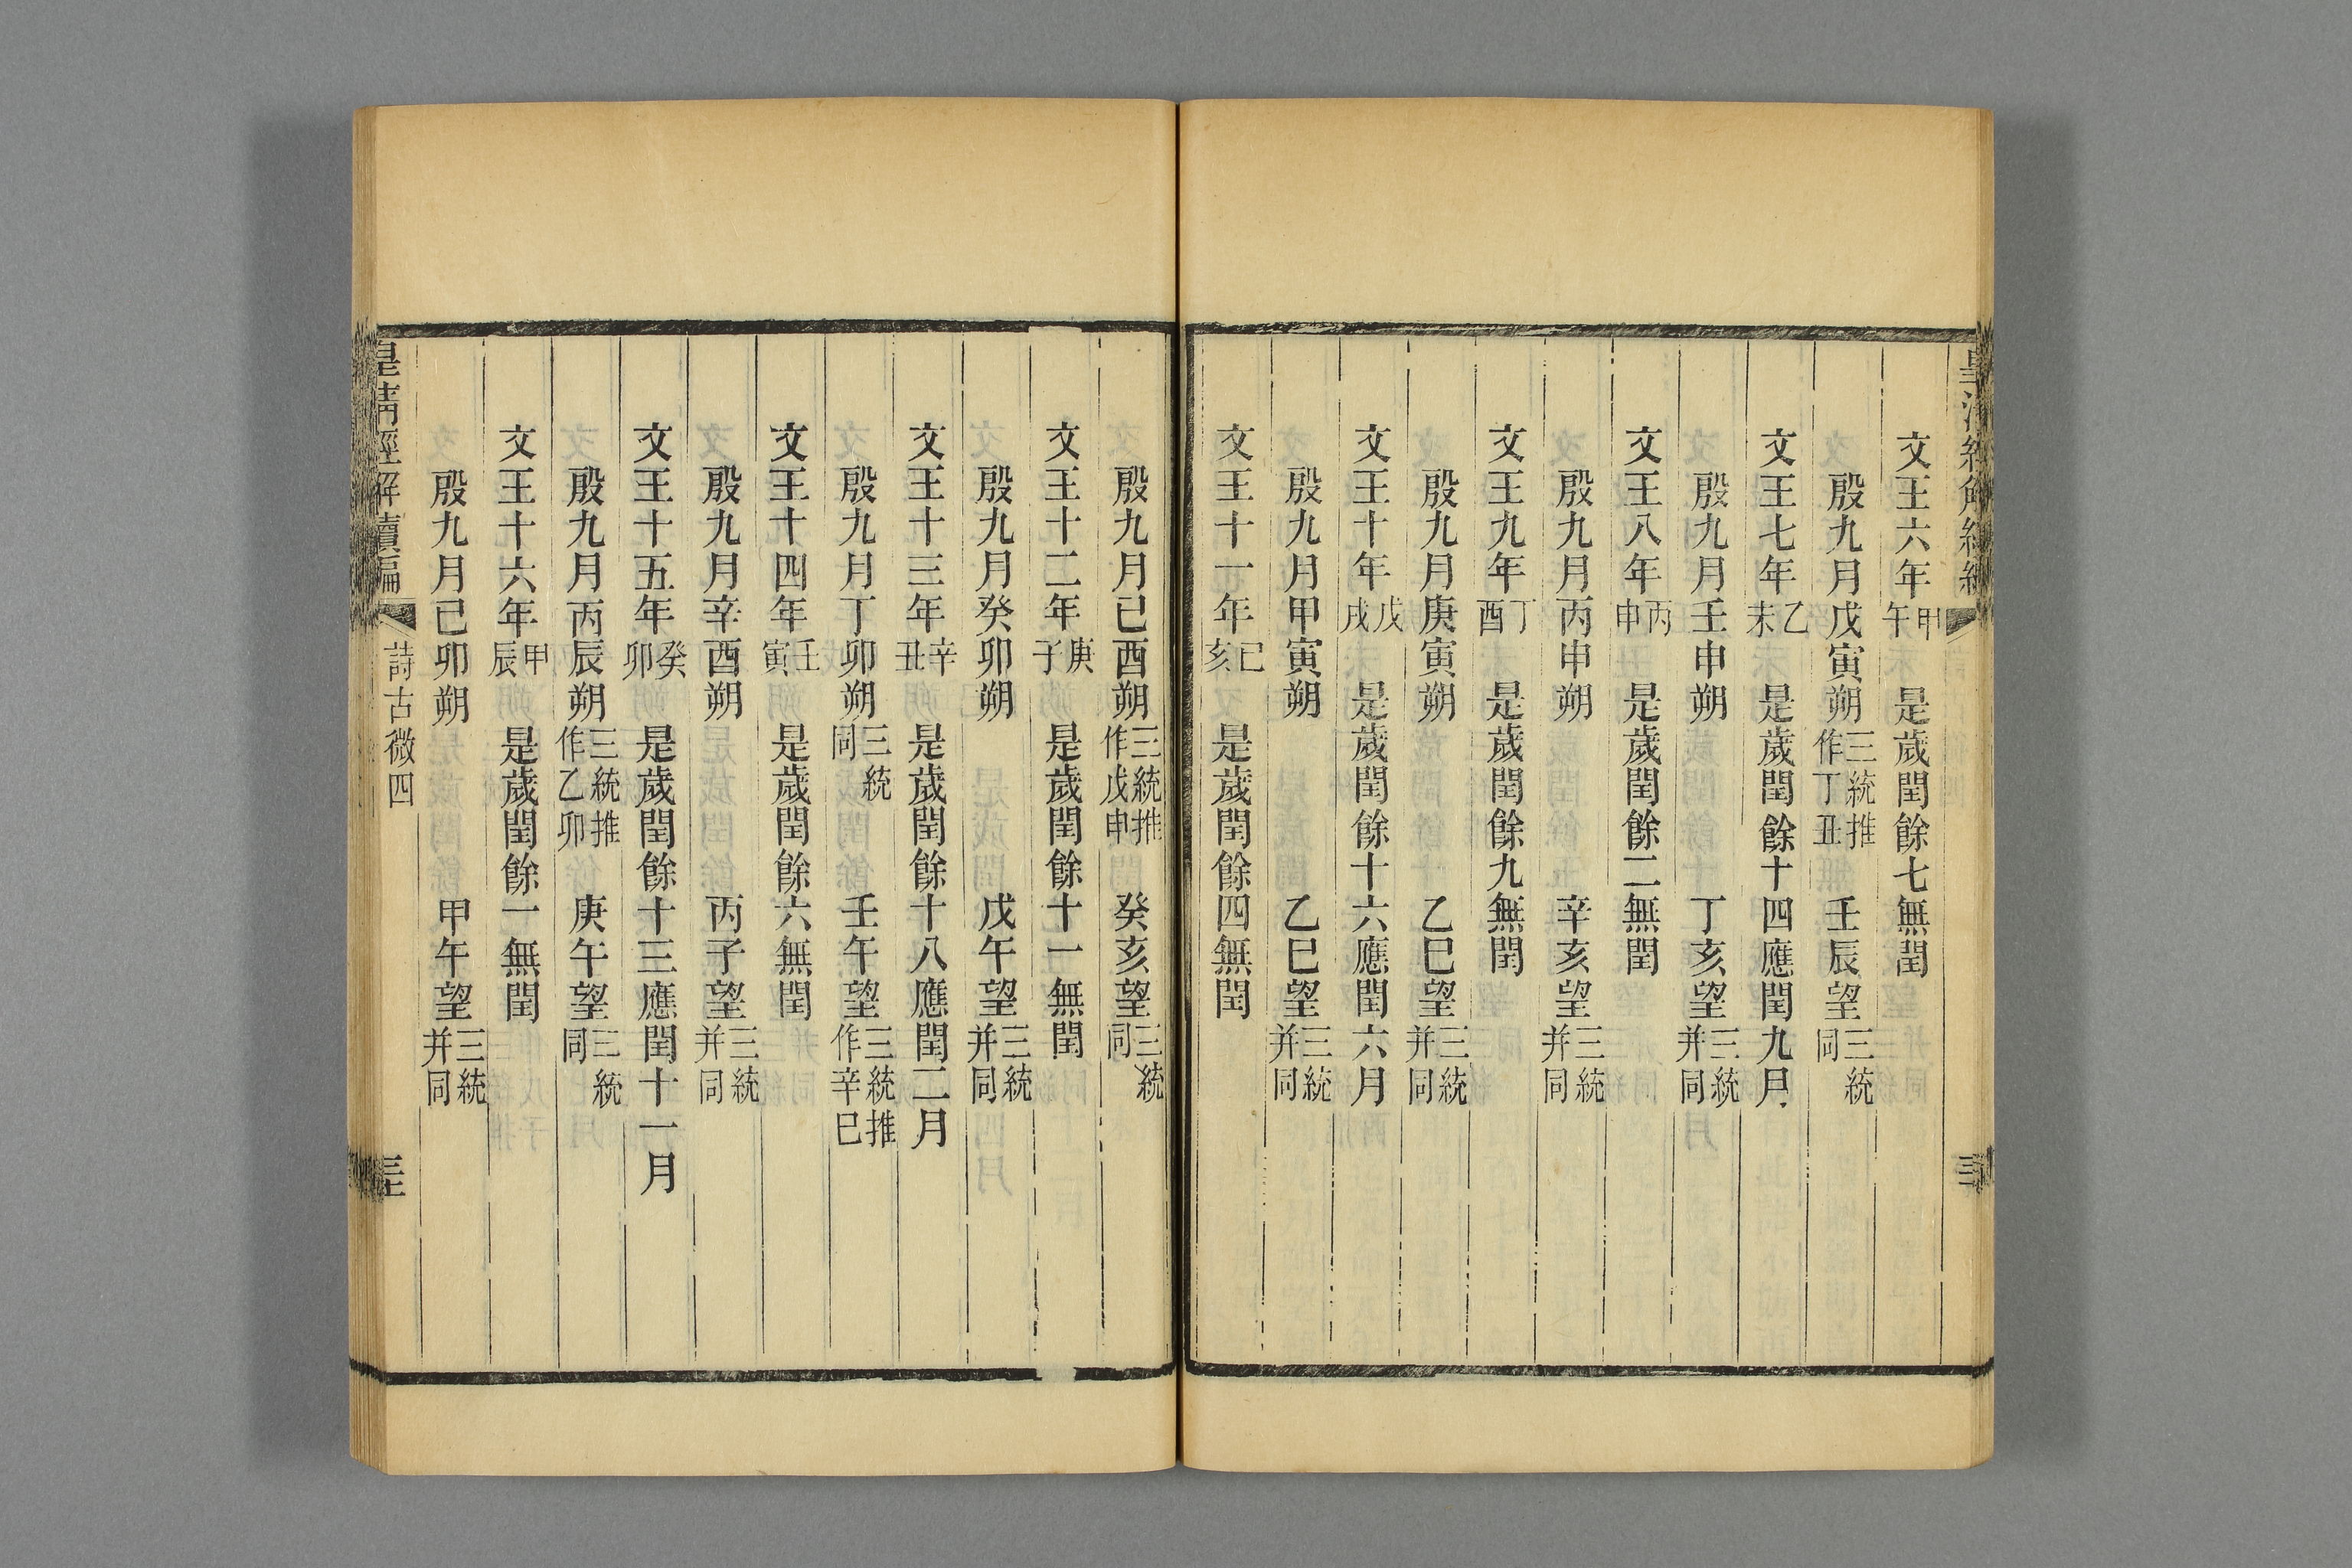 文王六年甲午 是歲閏餘七無閏
殷九月戊寅朔三統推作丁丑 壬辰望三統同
文王七年乙未 是歲閏餘十四應閏九月
殷九月壬申朔 丁亥望三統并同
文王八年丙申 是歲閏餘二無閏
殷九月丙申朔 辛亥望三統并同
文王九年丁酉 是歲閏餘九無閏
殷九月庚寅朔 乙巳望三統并同
文王十年戊戌 是歲閏餘十六應閏六月
殷九月甲寅朔 乙巳望三統并同
文王十一年己亥 是歲閏餘四無閏
殷九月己酉朔三統推作戊申 癸亥望三統同
文王十二年庚子 是歲閏餘十一無閏
殷九月癸卯朔 戊午望三統并同
文王十三年辛丑 是歲閏餘十八應閏二月
殷九月丁卯朔三統同 壬午望三統推作辛巳
文王十四年壬寅 是歲閏餘六無閏
殷九月辛酉朔 丙子望三統并同
文王十五年癸卯 是歲閏餘十三應閏十一月
殷九月丙辰朔三統推作乙卯 庚午望三統同
文王十六年甲辰 是歲閏餘一無閏
殷九月己卯朔 甲午望三統并同
皇清經解續編 詩古微四